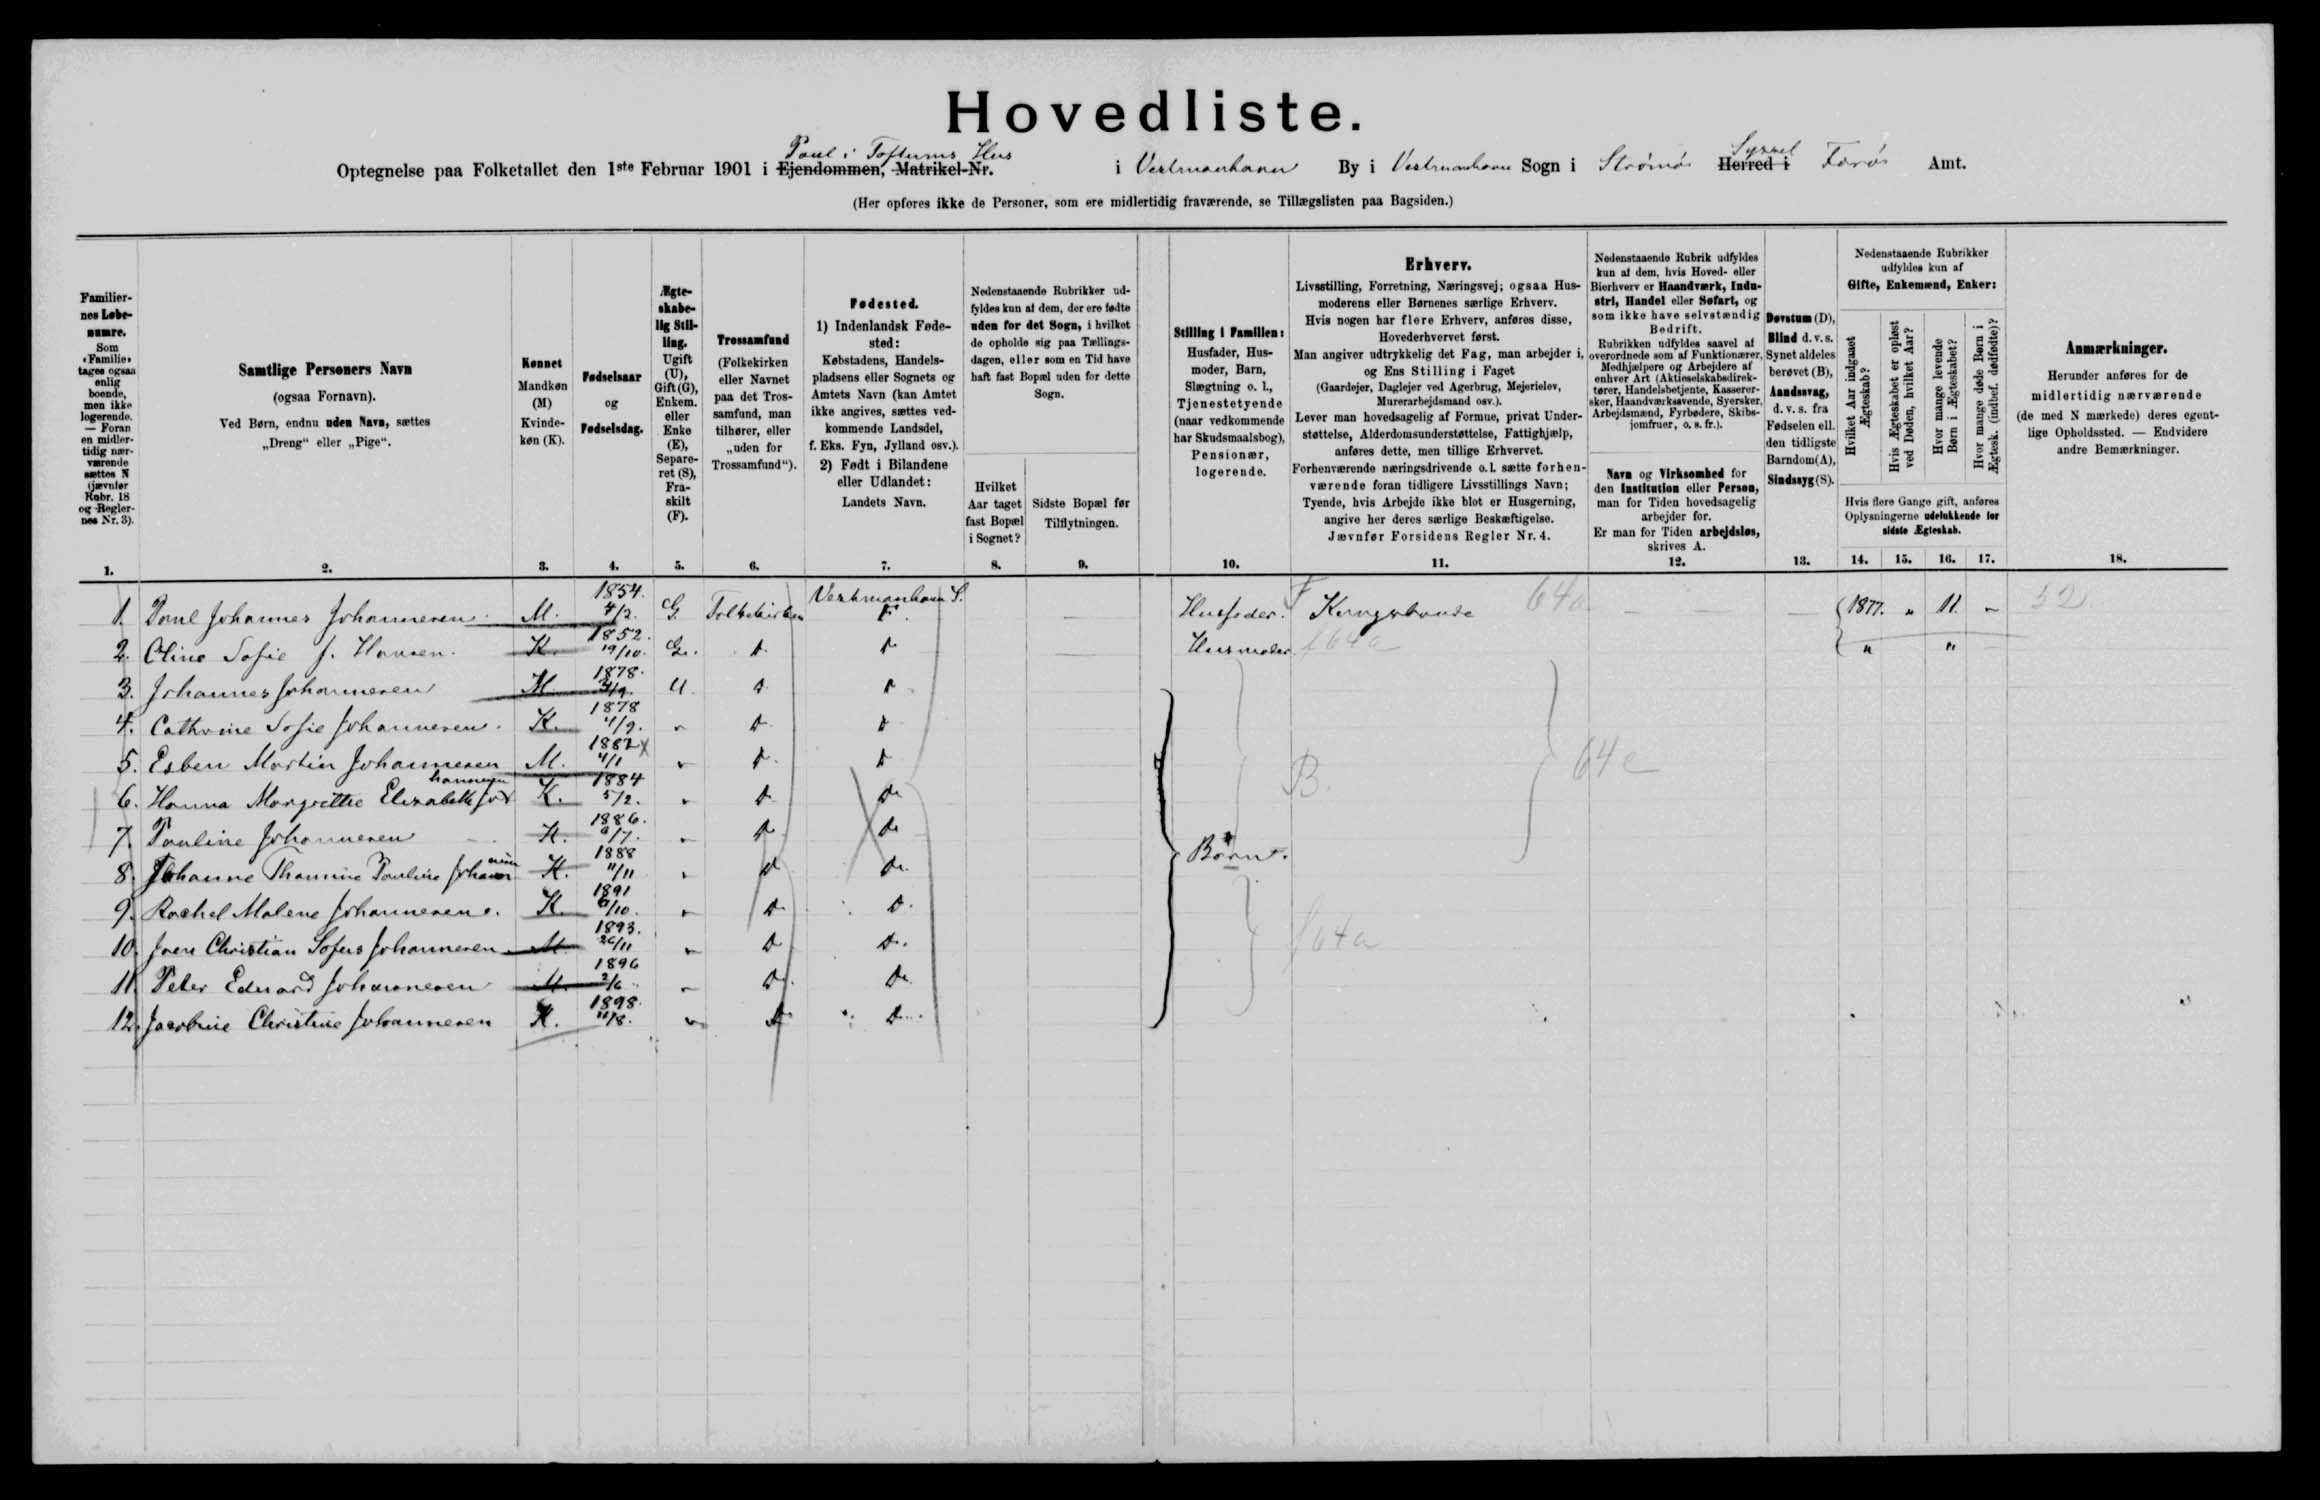 Hovedliste.
Poul i Toftums Hus
Syssel
Optegnelse paa Folketallet den 1ste Februar 1901 i Ejendommen, Matrikel-Nr. i Vestmanhavn By i Vestmanhavn Sogn i Strömö Herred i Færö Amt.
(Her opføres ikke de Personer, som ere midlertidig fraværende, se Tillægslisten paa Bagsiden.)
Familiernes Løbenumre.
Som «Familie» tages ogsaa enlig boende, men ikke logerende. — Foran en midlertidig nærværende sættes N (jævnfør Rubr. 18 og Reglernes Nr. 3).
1.
Samtlige Personers Navn
(ogsaa Fornavn).
Ved Børn, endnu uden Navn, sættes
„Dreng“ eller „Pige“.
2.
Kønnet
Mandkøn
(M)
Kvindekøn (K).
3.
Fødselsaar
og
Fødselsdag.
4.
Ægteskabelig Stilling.
Ugift (U), Gift (G), Enkem. eller Enke (E), Separeret (S), Fraskilt (F).
5.
Trossamfund
(Folkekirken eller Navnet paa det Trossamfund, man tilhører, eller „uden for Trossamfund“).
6.
Fødested.
1) Indenlandsk Fødested:
Købstadens, Handelspladsens eller Sognets og Amtets Navn (kan Amtet ikke angives, sættes vedkommende Landsdel, f. Eks. Fyn, Jylland osv.).
2) Født i Bilandene eller Udlandet:
Landets Navn.
7.
Nedenstaaende Rubrikker udfyldes kun af dem, der ere fødte uden for det Sogn, i hvilket de opholde sig paa Tællingsdagen, eller som en Tid have haft fast Bopæl uden for dette Sogn.
Hvilket Aar taget fast Bopæl i Sognet?
8.
Sidste Bopæl før Tilflytningen.
9.
Stilling i Familien:
Husfader, Husmoder, Barn, Slægtning o. l., Tjenestetyende (naar vedkommende har Skudsmaalsbog), Pensionær, logerende.
10.
Erhverv.
Livsstilling, Forretning, Næringsvej; ogsaa Husmoderens eller Børnenes særlige Erhverv.
Hvis nogen har flere Erhverv, anføres disse, Hovederhvervet først.
Man angiver udtrykkelig det Fag, man arbejder i, og Ens Stilling i Faget
(Gaardejer, Daglejer ved Agerbrug, Mejerielev, Murerarbejdsmand osv.).
Lever man hovedsagelig af Formue, privat Understøttelse, Alderdomsunderstøttelse, Fattighjælp, anføres dette, men tillige Erhvervet.
Forhenværende næringsdrivende o. l. sætte forhenværende foran tidligere Livsstillings Navn;
Tyende, hvis Arbejde ikke blot er Husgerning, angive her deres særlige Beskæftigelse.
Jævnfør Forsidens Regler Nr. 4.
11.
Nedenstaaende Rubrik udfyldes kun af dem, hvis Hoved- eller Bierhverv er Haandværk, Industri, Handel eller Søfart, og som ikke have selvstændig Bedrift.
Rubrikken udfyldes saavel af overordnede som af Funktionærer, Medhjælpere og Arbejdere af enhver Art (Aktieselskabsdirektører, Handelsbetjente, Kasserersker, Haandværkssvende, Syersker, Arbejdsmænd, Fyrbødere, Skibsjomfruer, o. s. fr.).
Navn og Virksomhed for den Institution eller Person, man for Tiden hovedsagelig arbejder for.
Er man for Tiden arbejdsløs, skrives A.
12.
Døvstum (D), Blind d. v. s. Synet aldeles berøvet (B), Aandssvag, d. v. s. fra Fødselen ell. den tidligste Barndom (A), Sindssyg (S).
13.
Nedenstaaende Rubrikker udfyldes kun af
Gifte, Enkemænd, Enker:
Hvilket Aar indgaaet Ægteskab?
Hvis Ægteskabet er opløst ved Døden, hvilket Aar?
Hvor mange levende Børn i Ægteskabet?
Hvor mange døde Børn i Ægtesk. (indbef. dødfødte)?
Hvis flere Gange gift, anføres Oplysningerne udelukkende for sidste Ægteskab.
14. 15. 16. 17.
Anmærkninger.
Herunder anføres for de midlertidig nærværende (de med N mærkede) deres egentlige Opholdssted. — Endvidere andre Bemærkninger.
18.
1. Poul Johannes Johannesen M. 1854. 4/2. G. Folkekirken Vestmanhavn S. F. Husfader. Kongsbonde 64a 1877. „ 11. – 52
2. Oline Sofie f. Hansen. K. 1852. 19/10. G. D. D Husmoder. f 64a „ „
3. Johannes Johannesen M. 1878. U. D. D
4. Cathrine Sofie Johannesen. K. 1878 4/9. „ D D
5. Esben Martin Johannesen M. 1882 4/1 „ D. D B. 64e
6. Hanna Margrethe Elisabeth Johannesen K. 1884 5/2. „ D Do
7. Pauline Johannesen K. 1886. „ D Do
8. Johanne Thomine Pauline K. 1888 11/11 „ D Do Børn.
9. Rachel Malene Johannesen. K. 1891 „ D D.
10. Joen Christian Sofus Johannesen M 1893. 26/11 „ D D. f 64a
11. Peter Eduard Johannesen M. 1896 2/6 „ D. Do
12. Jacobine Christine Johannesen K. 1898. „ D D.